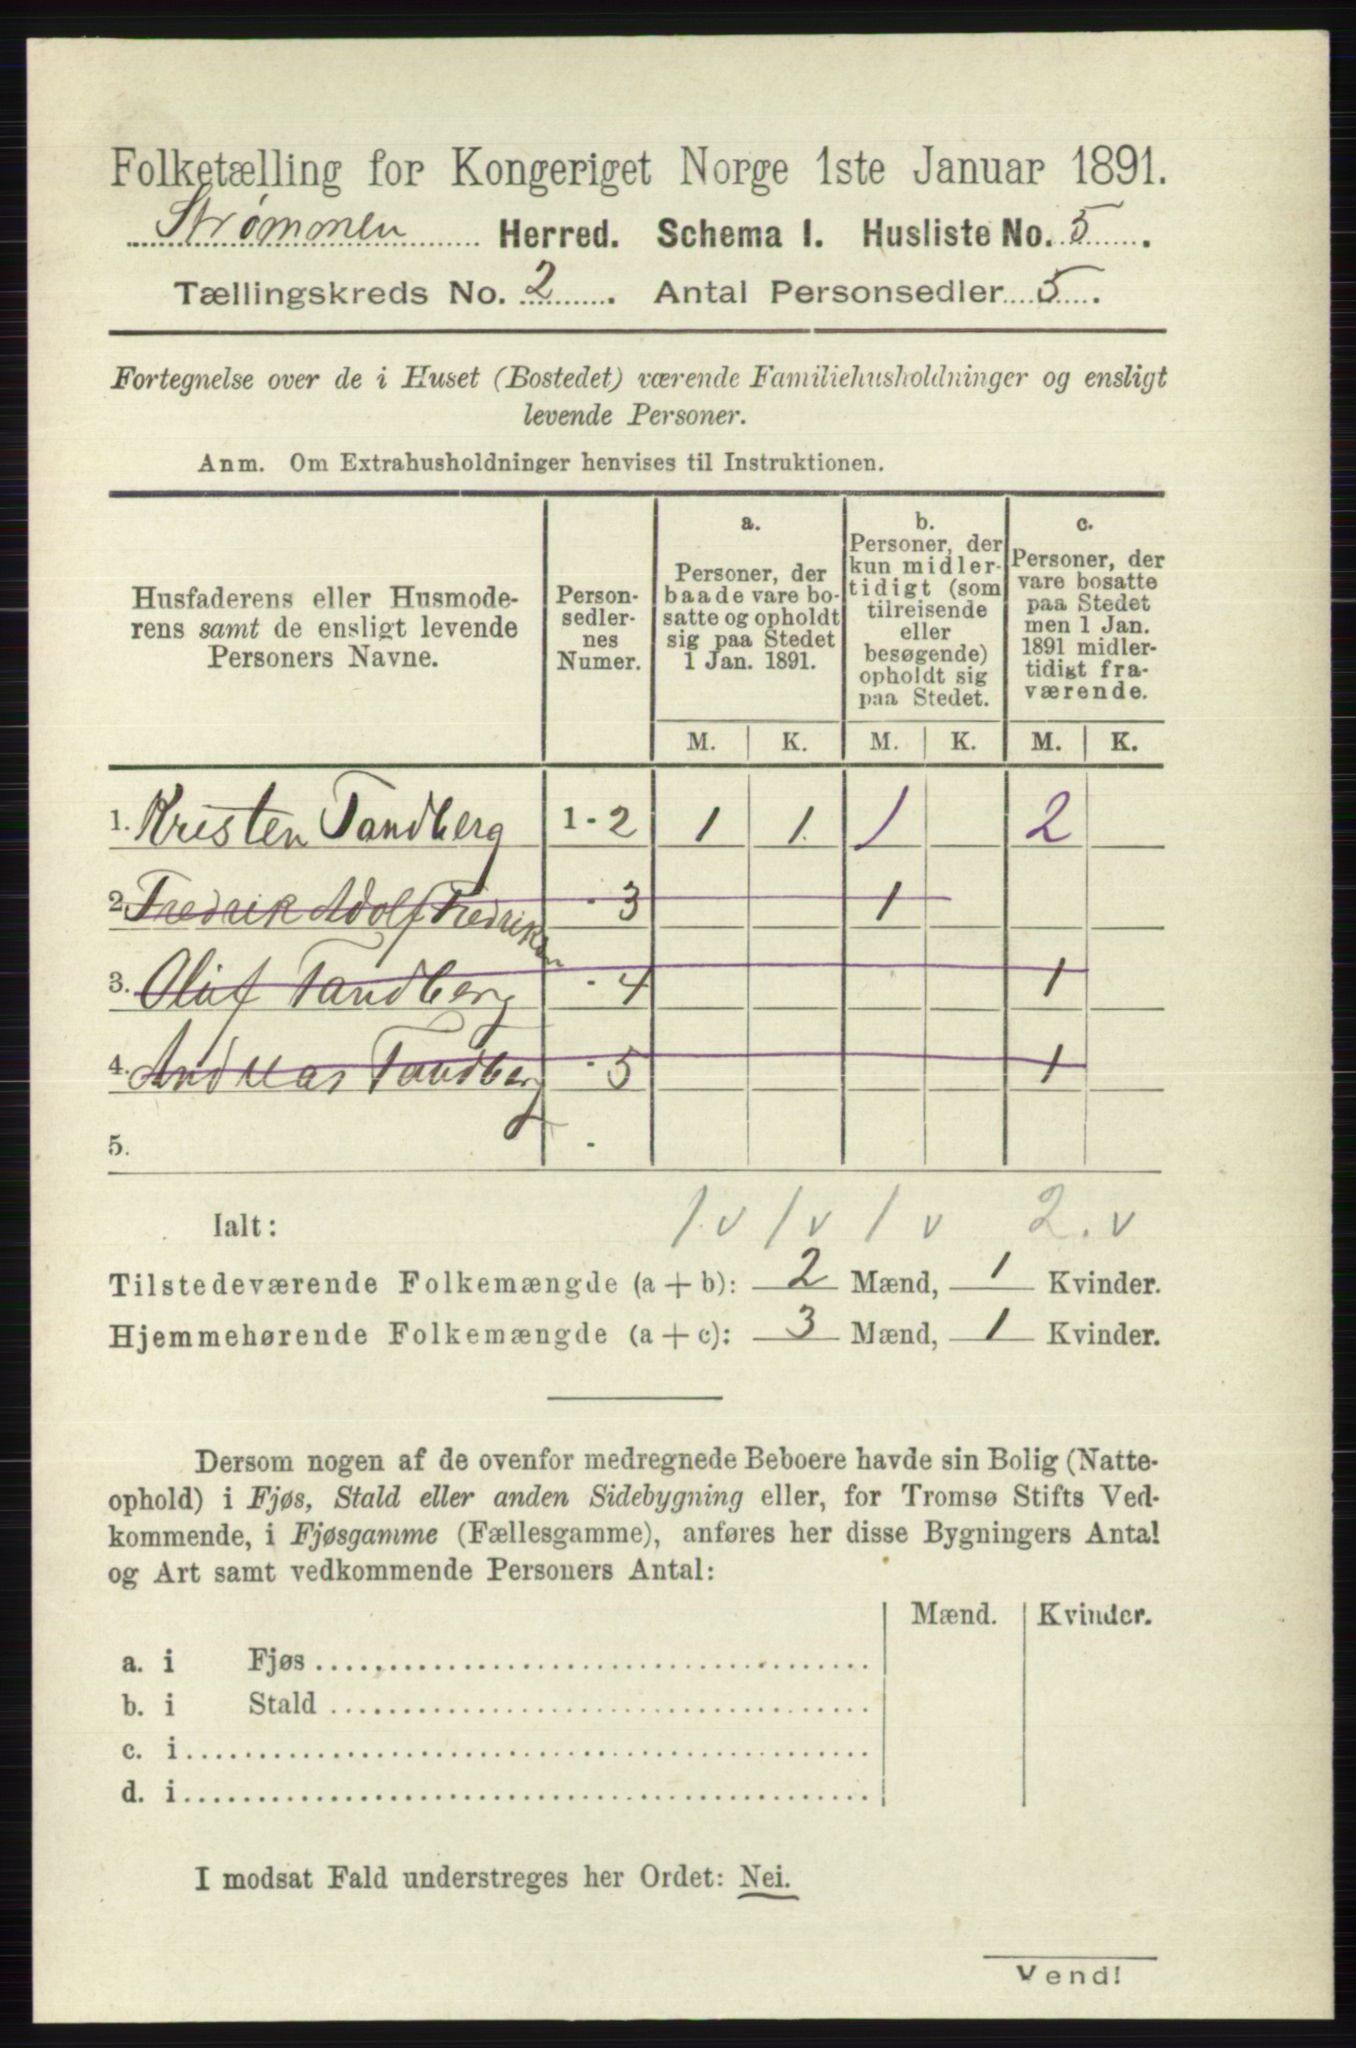 Folketælling for Kongeriget Norge 1ste Januar 1891.
Strømmen Herred. Schema I. Husliste No. 5.
Tællingskreds No. 2. Antal Personsedler 5.
Fortegnelse over de i Huset (Bostedet) værende Familiehusholdninger og ensligt
levende Personer.
Anm. Om Extrahusholdninger henvises til Instruktionen.
Husfaderens eller Husmode-
rens samt de ensligt levende
Personers Navne.
Person-
sedler-
nes
Numer.
a.
Personer, der
baade vare bo-
satte og opholdt
sig paa Stedet
1 Jan. 1891.
b.
Personer, der
kun midler-
tidigt (som
tilreisende
eller
besøgende)
opholdt sig
paa Stedet.
c.
Personer, der
vare bosatte
paa Stedet
men 1 Jan.
1891 midler-
tidigt fra-
værende.
M. K. M. K. M. K.
1. Kristen Tandberg 1 - 2 1 1. 1 2
2. Fredrik Adolf Fredriksen - 3 1
3. Oluf Tandberg - 4 1
4. Andreas Tandberg - 5 1
5. -
Ialt: 1. v 1 v 1 v 2. v
Tilstedeværende Folkemængde (a + b): 2 Mænd, 1 Kvinder.
Hjemmehørende Folkemængde (a + c): 3 Mænd, 1 Kvinder.
Dersom nogen af de ovenfor medregnede Beboere havde sin Bolig (Natte-
ophold) i Fjøs, Stald eller anden Sidebygning eller, for Tromsø Stifts Ved-
kommende, i Fjøsgamme (Fællesgamme), anføres her disse Bygningers Antal
og Art samt vedkommende Personers Antal:
Mænd. Kvinder.
a. i Fjøs
b. i Stald
c. i
d. i
I modsat Fald understreges her Ordet: Nei.
Vend!